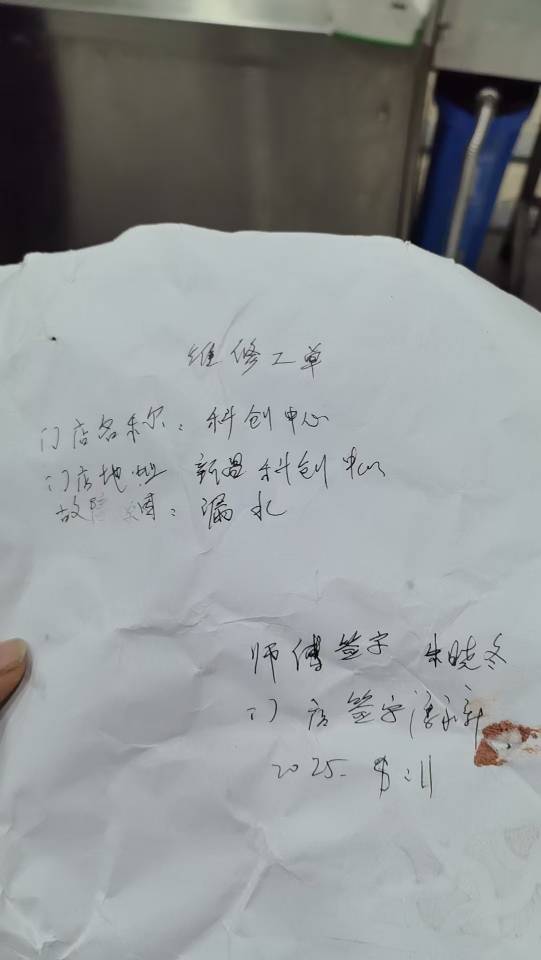 维修工单
门店名称：科创中心
门店地址 新温科创中心
故障原因：漏水
师傅签字 朱晓冬
门店签字
2025. 8:11